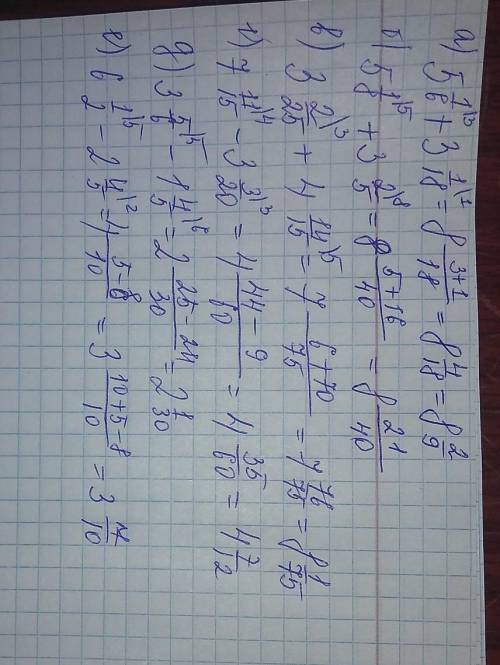 а) 5 1/6 \3 + 3 1/18 \1 = 8 (3+1)/18 = 8 4/18 = 8 2/9
б) 5 1/8 \5 + 3 2/5 \8 = 8 (5+16)/40 = 8 21/40
в) 3 2/25 \3 + 4 14/15 \5 = 7 (6+70)/75 = 7 76/75 = 8 1/75
г) 7 11/15 \4 - 3 3/20 \3 = 4 (44-9)/60 = 4 35/60 = 4 7/12
д) 3 5/6 \5 - 1 4/5 \6 = 2 (25-24)/30 = 2 1/30
е) 6 1/2 \5 - 2 4/5 \2 = 4 (5-8)/10 = 3 (10+5-8)/10 = 3 7/10